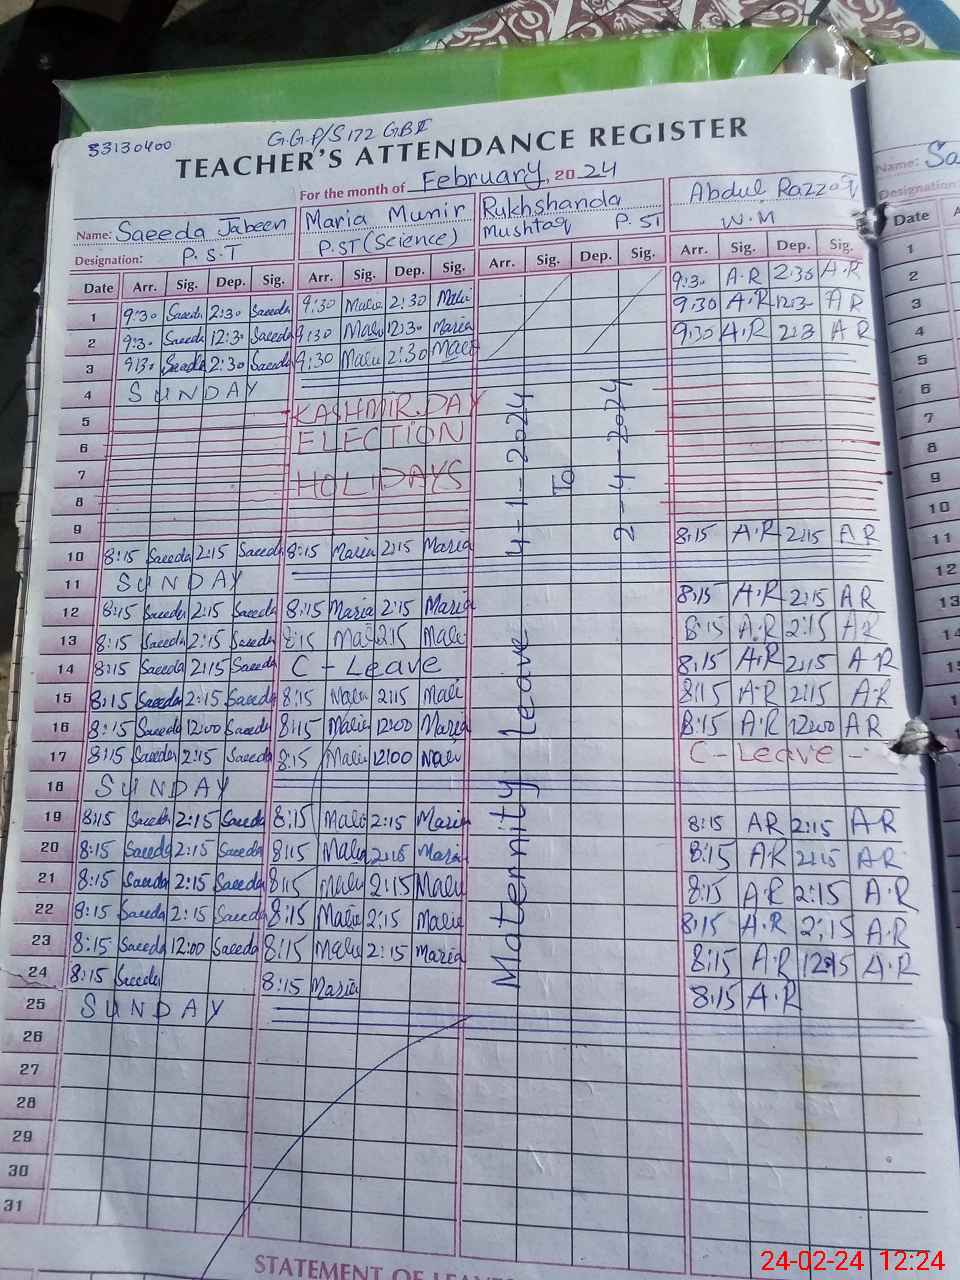 33130400 G.G.P/S 172 GB
TEACHER'S ATTENDANCE REGISTER
For the month of February, 20 24
Name: Saeeda Jabeen Maria Munir Rukhshanda Mushtaq Abdul Razzaq
Designation: P.S.T P.ST (Science) P. ST W.M
Date Arr. Sig. Dep. Sig. Arr. Sig. Dep. Sig. Arr. Sig. Dep. Sig. Arr. Sig. Dep. Sig.
1 9:30 Saeeda 2:30 Saeeda 9:30 2:30 9:30 A.R 2:30 A.R
2 9:30 Saeeda 12:30 Saeeda 9:30 12:30 Maria 9:30 A.R 12:30 A R
3 9:30 Saeeda 2:30 Saeeda 9:30 2:30 9:30 A.R A R
4 SUNDAY
5 KASHMIR DAY
6 ELECTION
7 HOLIDAYS
8
9
10 8:15 Saeeda 2:15 Saeeda 8:15 Maria 2:15 Maria 8:15 A.R 2:15 A R
11 SUNDAY
12 8:15 Saeeda 2:15 Saeeda 8:15 Maria 2:15 Maria 8:15 A.R 2:15 A R
13 8:15 Saeeda 2:15 Saeeda 8:15 2:15 8:15 A.R 2:15 A R
14 8:15 Saeeda 2:15 Saeeda C - Leave 8:15 A.R 2:15 A R
15 8:15 Saeeda 2:15 Saeeda 8:15 2:15 8:15 A.R 2:15 A.R
16 8:15 Saeeda 12:00 Saeeda 8:15 12:00 Maria 8:15 A.R 12:00 A R
17 8:15 Saeeda 2:15 Saeeda 8:15 12:00 C - Leave -
18 SUNDAY
19 8:15 Saeeda 2:15 Saeeda 8:15 2:15 Maria 8:15 A R 2:15 A R
20 8:15 Saeeda 2:15 Saeeda 8:15 2:15 Maria 8:15 A.R 2:15 A R
21 8:15 Saeeda 2:15 Saeeda 8:15 2:15 8:15 A.R 2:15 A.R
22 8:15 Saeeda 2:15 Saeeda 8:15 2:15 8:15 A.R 2:15 A.R
23 8:15 Saeeda 12:00 Saeeda 8:15 2:15 Maria 8:15 A.R 12:15 A.R
24 8:15 Saeeda 8:15 Maria 8:15 A.R
25 SUNDAY
26
27
28
29
30
31
Maternity Leave 4-1-2024
To
2-4-2024
Name: Sa
Designation:
Date
1
2
3
4
5
6
7
8
9
10
11
12
13
STATEMENT OF
24-02-24 12:24